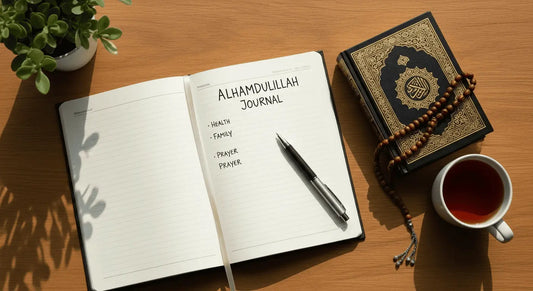 ALHAMDULILLAH
JOURNAL
· HEALTH
· FAMILY
· PRAYER
PRAYER